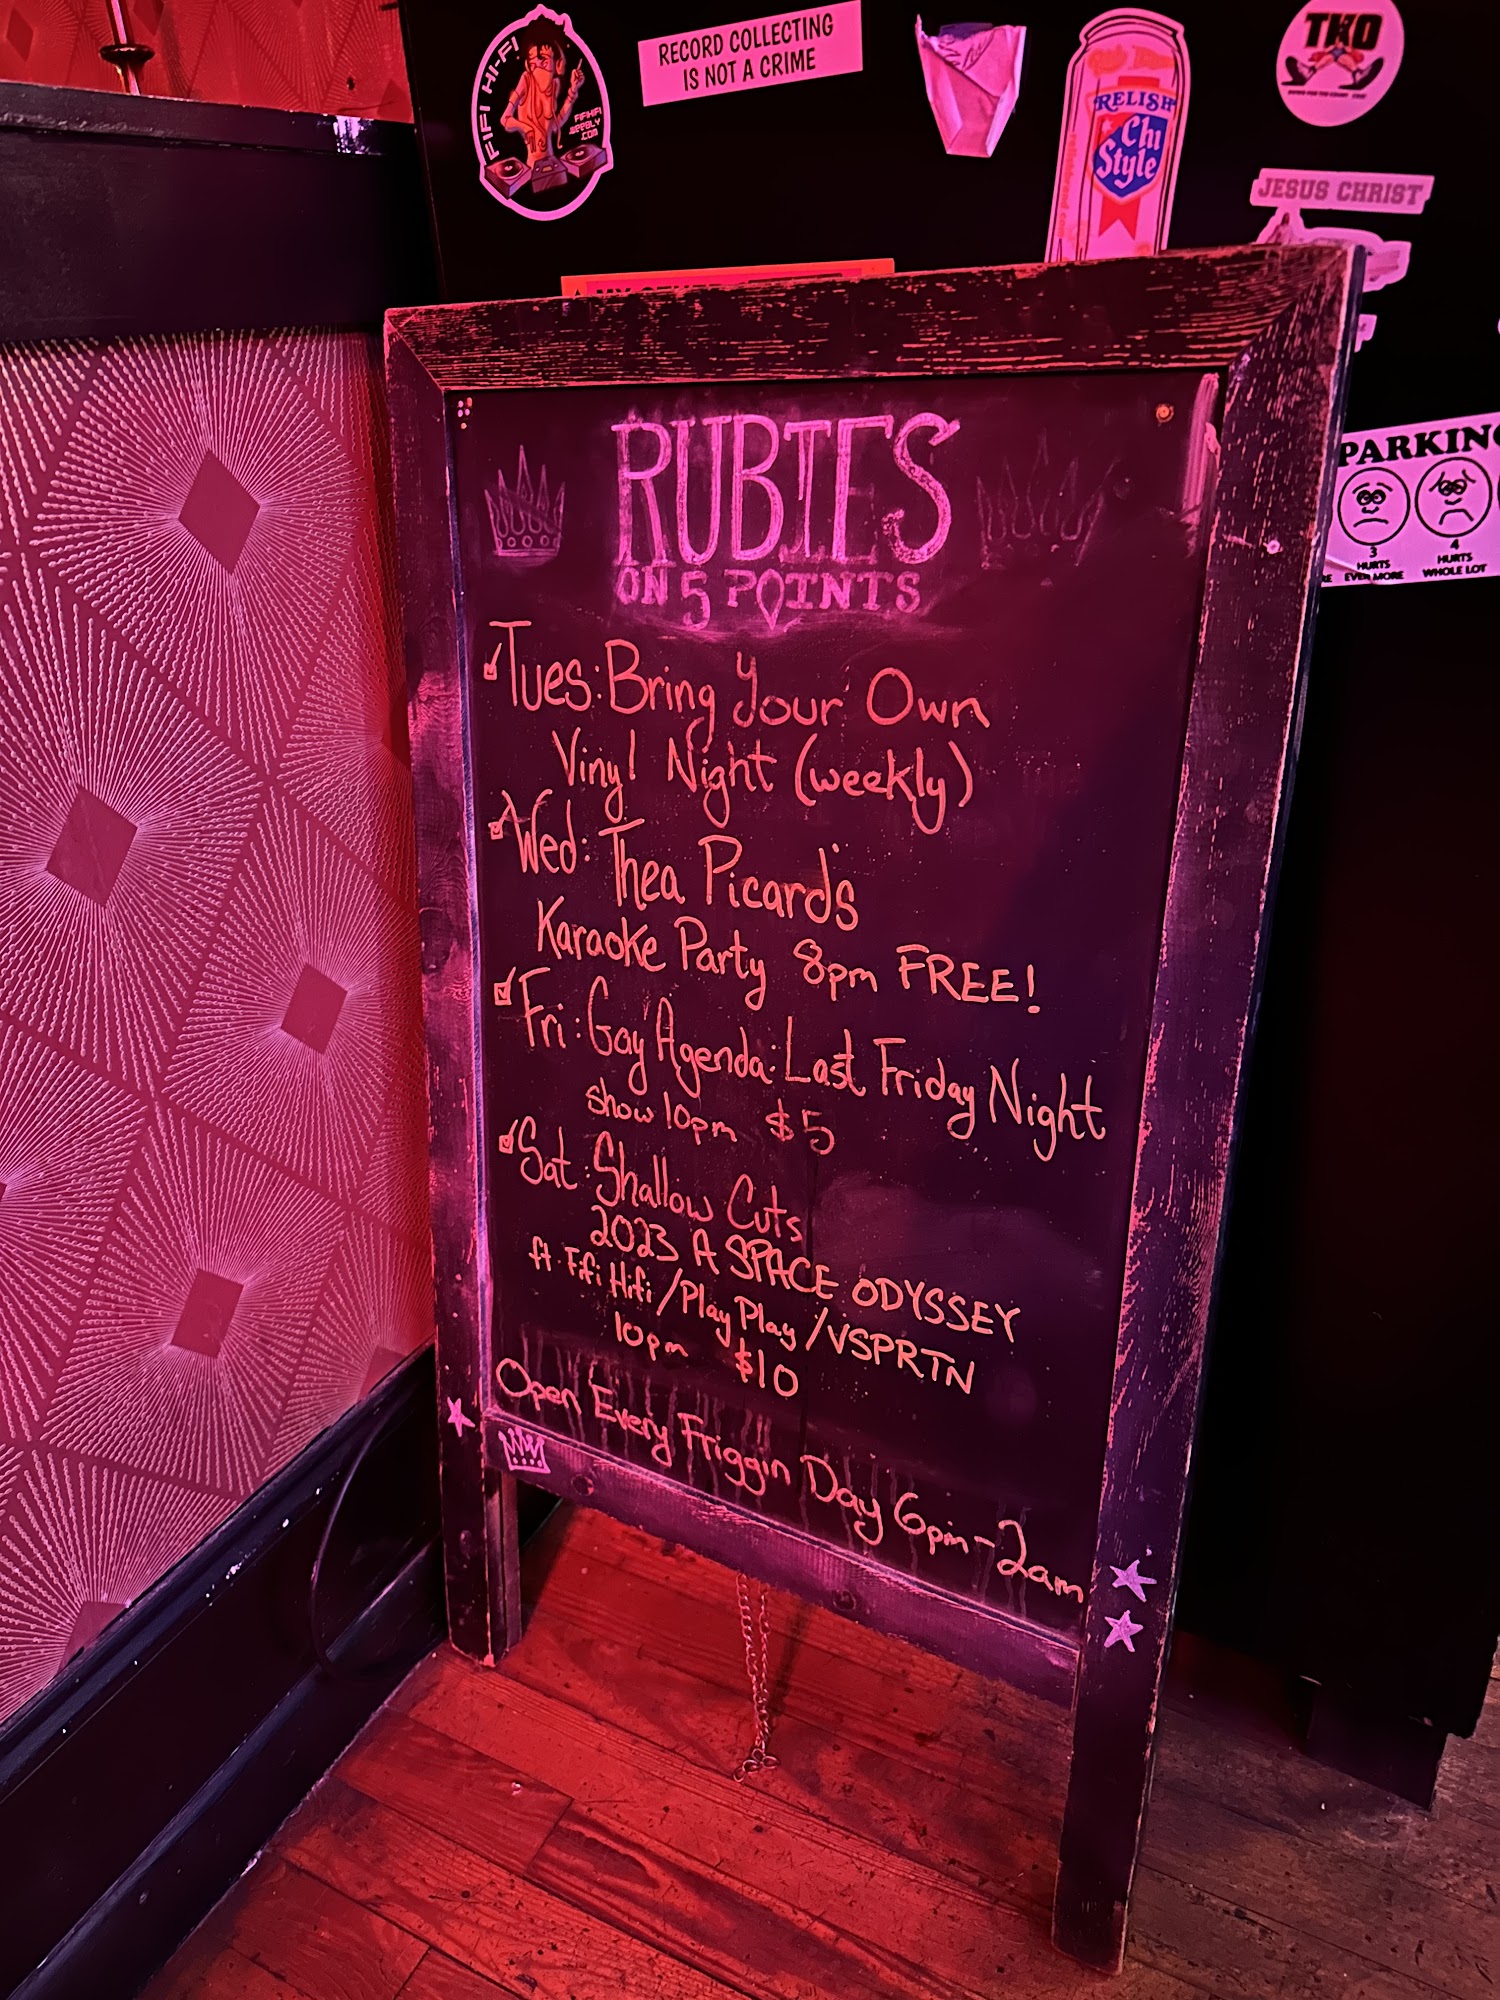 FIFI HI-FI
FIFIHIFI
.WEEBLY
.COM
RECORD COLLECTING
IS NOT A CRIME
RELISH
Chi
Style
TKO
JESUS CHRIST
PARKING
3
HURTS
EVEN MORE
4
HURTS
WHOLE LOT
RUBIES
ON 5 POINTS
Tues: Bring Your Own
Vinyl Night (weekly)
Wed: Thea Picard's
Karaoke Party 8pm FREE!
Fri: Gay Agenda: Last Friday Night
Show 10pm $5
Sat: Shallow Cuts
2023 A SPACE ODYSSEY
ft. Fifi Hifi / Play Play / VSPRTN
10pm $10
Open Every Friggin Day 6pm-2am